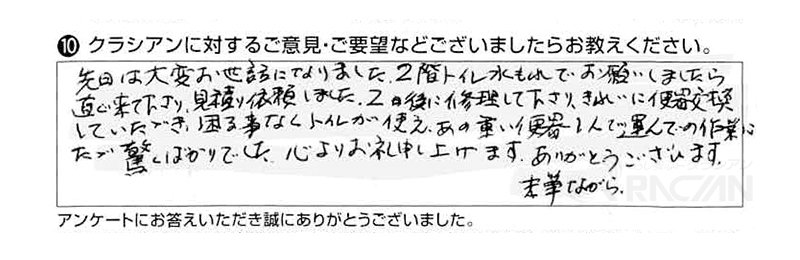 ⑩ クラシアンに対するご意見・ご要望などございましたらお教えください。
先日は大変お世話になりました。2階トイレ水もれでお願いしましたら
直ぐ来て下さり、見積り依頼しました。2日後に修理して下さり、きれいに便器交換
していただき、困る事なくトイレが使え、あの重い便器を1人で運んでの作業に
ただ驚くばかりでした。心よりお礼申し上げます。ありがとうございます。
末筆ながら。
アンケートにお答えいただき誠にありがとうございました。